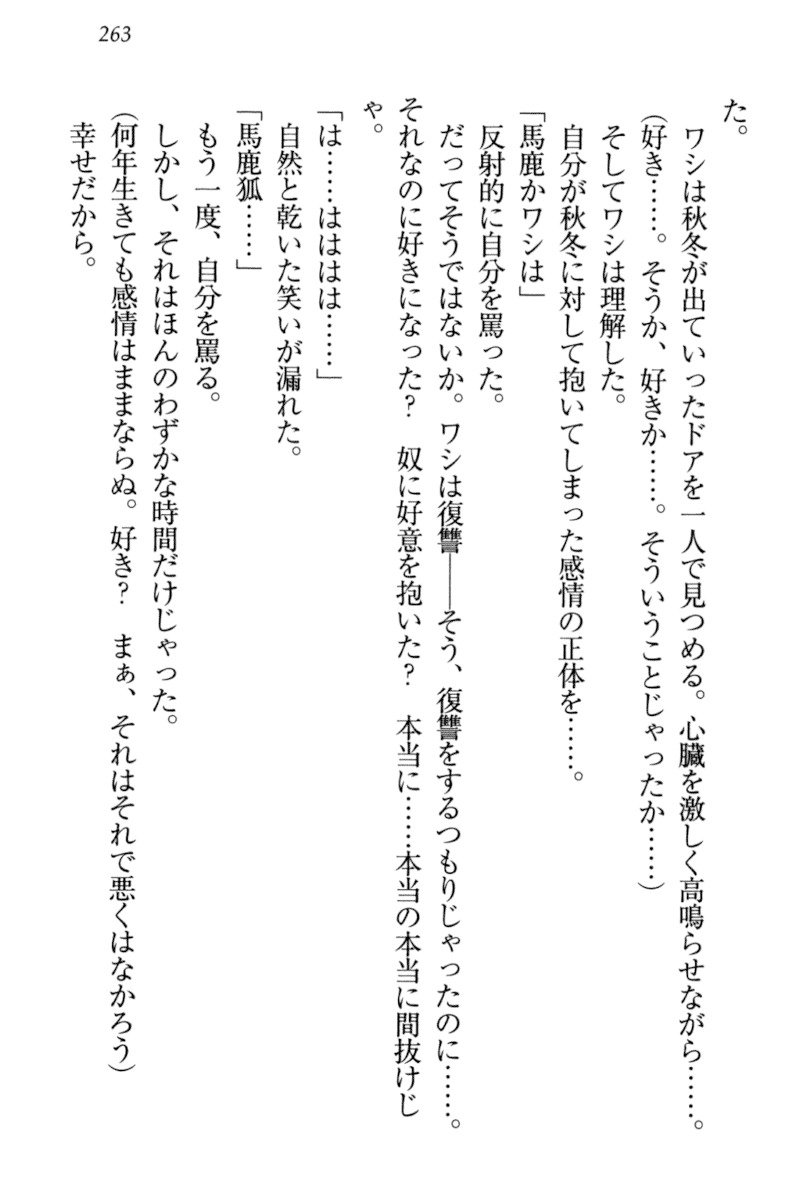 263
た。
　ワシは秋冬が出ていったドアを一人で見つめる。心臓を激しく高鳴らせながら……。
（好き……。そうか、好きか……。そういうことじゃったか……）
　そしてワシは理解した。
　自分が秋冬に対して抱いてしまった感情の正体を……。
「馬鹿かワシは」
　反射的に自分を罵った。
　だってそうではないか。ワシは復讐――そう、復讐をするつもりじゃったのに……。
それなのに好きになった？　奴に好意を抱いた？　本当に……本当の本当に間抜けじ
ゃ。
「は……はははは……」
　自然と乾いた笑いが漏れた。
「馬鹿狐……」
　もう一度、自分を罵る。
　しかし、それはほんのわずかな時間だけじゃった。
（何年生きても感情はままならぬ。好き？　まぁ、それはそれで悪くはなかろう）
　幸せだから。